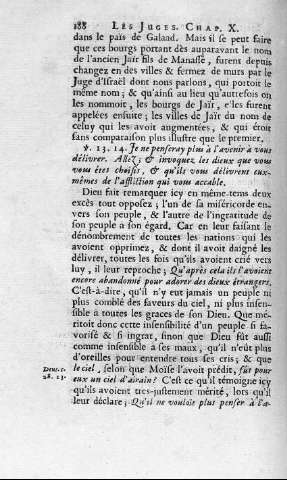 188 LES JUGES. CHAP. X.
dans le païs de Galaad. Mais il se peut faire
que ces bourgs portant dès auparavant le nom
de l'ancien Jaïr fils de Manassé, furent depuis
changez en des villes & fermez de murs par le
Juge d'Israël dont nous parlons, qui portoit le
même nom; & qu'ainsi au lieu qu'autrefois on
les nommoit, les bourgs de Jaïr, elles furent
appelées ensuite; les villes de Jaïr du nom de
celuy qui les avoit augmentées, & qui étoit
sans comparaison plus illustre que le premier.
℣. 13. 14. Je ne penseray plus à l'avenir à vous
délivrer. Allez, & invoquez les dieux que vous
vous êtes choisis, & qu'ils vous délivrent eux-
mêmes de l'affliction qui vous accable.
Dieu fait remarquer icy en même-tems deux
excès tout opposez; l'un de sa miséricorde en-
vers son peuple, & l'autre de l'ingratitude de
son peuple à son égard. Car en leur faisant le
dénombrement de toutes les nations qui les
avoient opprimez, & dont il avoit daigné les
délivrer, toutes les fois qu'ils avoient crié vers
luy, il leur reproche; Qu'après cela ils l'avoient
encore abandonné pour adorer des dieux étrangers.
C'est-à-dire, qu'il n'y eut jamais un peuple ni
plus comblé des faveurs du ciel, ni plus insen-
sible à toutes les graces de son Dieu. Que mé-
ritoit donc cette insensibilité d'un peuple si fa-
vorisé & si ingrat, sinon que Dieu fût aussi
comme insensible à ses maux, qu'il n'eût plus
d'oreilles pour entendre tous ses cris; & que
Deut. c. le ciel, selon que Moïse l'avoit prédit, fût pour
28. 23. eux un ciel d'airain? C'est ce qu'il témoigne icy
qu'ils avoient tres-justement mérité, lors qu'il
leur déclare; Qu'il ne vouloit plus penser à l'a-